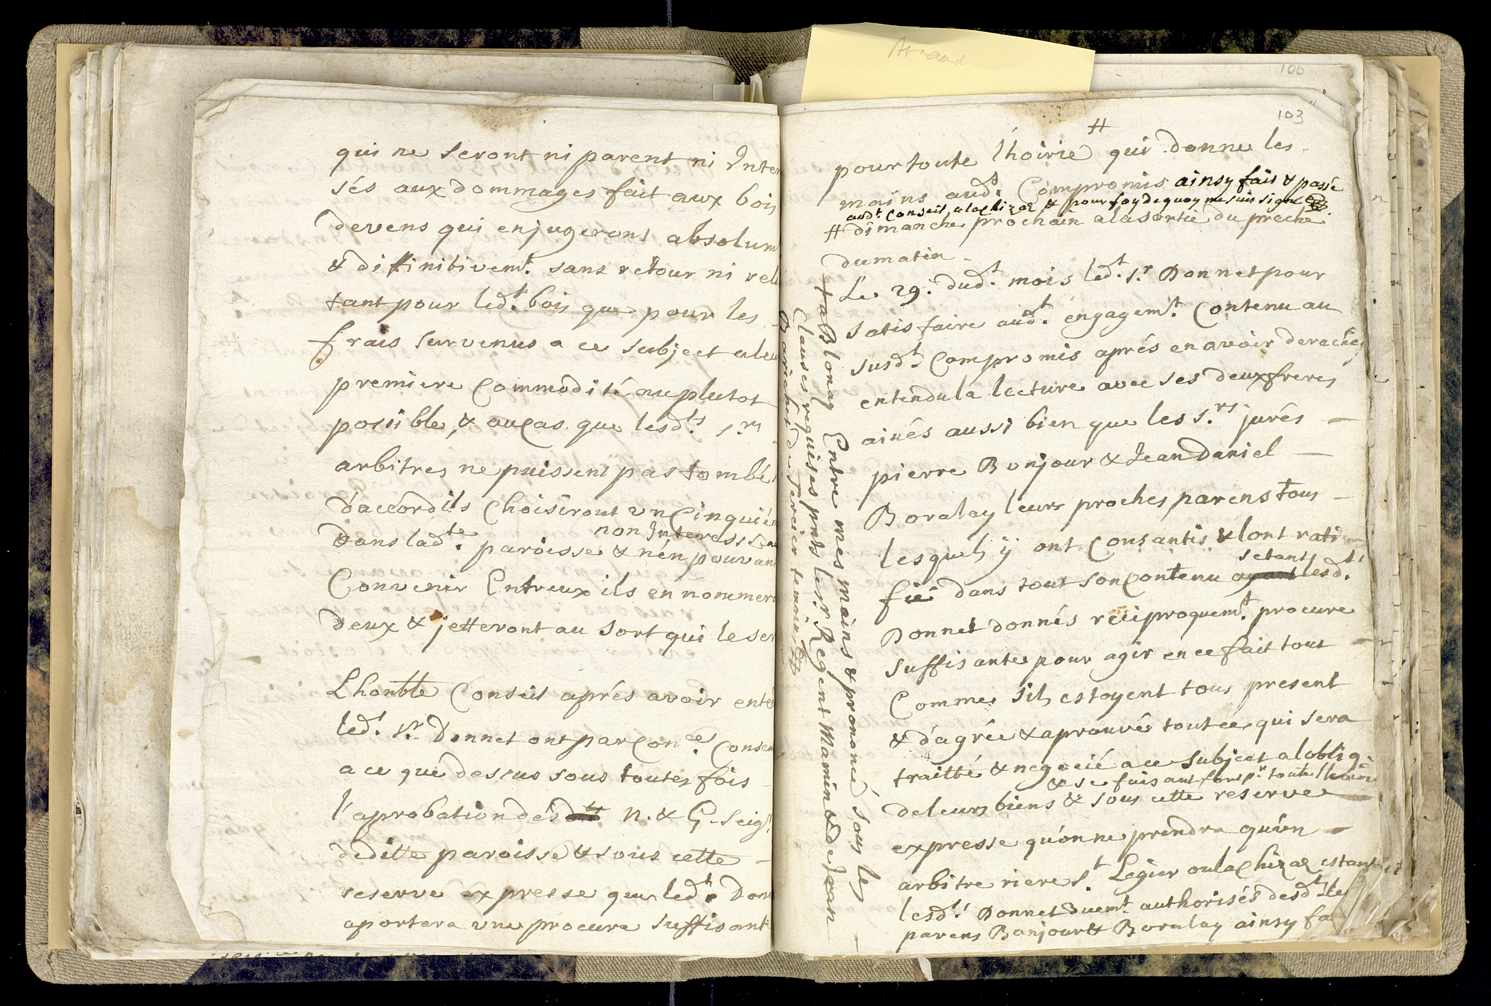 qui ne seront ni parent ni Inter
sés aux dommages fait aux bois
devens qui enjugeront absolum
& diffinitivemt. sans retour ni rel
tant pour ledt. bois que pour les
frais survenus a ce subject a leu
premiere Commodité ou plutot
possible, & au cas que lesdts. srs
arbitres ne puissent pas tombé
d'accord ils Choisiront un Cinquié
non Interessé
dans ladte. paroisse & n'en pouvan
Convenir Entreux ils en nommer
deux & jetteront au sort qui le ser
Lhonble Conseil aprés avoir ente
ledt. Sr. Donnet ont par Conce. Consen
a ce que dessus sous toutes fois
l'aprobation des N. & G. Seigrs
de ditte paroisse & sous cette
reserve expresse que ledt. Don
aportera une procure suffisant
Arnaud
100
103
#
pour toute l'hoirie qui donne les
mains audt. Compromis ainsy fait & passé
audt. Conseil, a la Chizaz & pour foy de quoy me suis signé
# dimanche prochain a la sortie du preche
du matin
Le 29e. dudt. mois ledt. Sr. Donnet pour
satisfaire audt. engagemt. Contenu au
susdt. Compromis aprés en avoir derachef
entendu la lecture avec ses deux freres
ainés aussi bien que les Srs jurés
pierre Bonjour & Jean Daniel
Boralay leurs proches parens tous
lesquels ÿ ont Consantis & lont rati
setant
fié dans tout son Contenu lesdts.
Donnet donnés reciproquemt. procure
suffisante pour agir en ce fait tout
Comme s'ils estoyent tous present
& d'agrée & aprouvé tout ce qui sera
traitté & negocié a ce subject a lobligon
& se faisant fort pr. toute lhoirie
de leurs biens & sous cette reserve
expresse qu'on ne prendra qu'un
arbitre riere St. Legier ou la Chizaz estant
lesdts. Donnet duemt. authorisés desdts. le
parens Bonjour & Boralay ainsy fa
ta Blonay Entre mes mains & prononcé sous les
Clauses requises pnts le sr. Regent Mamin & de Jean